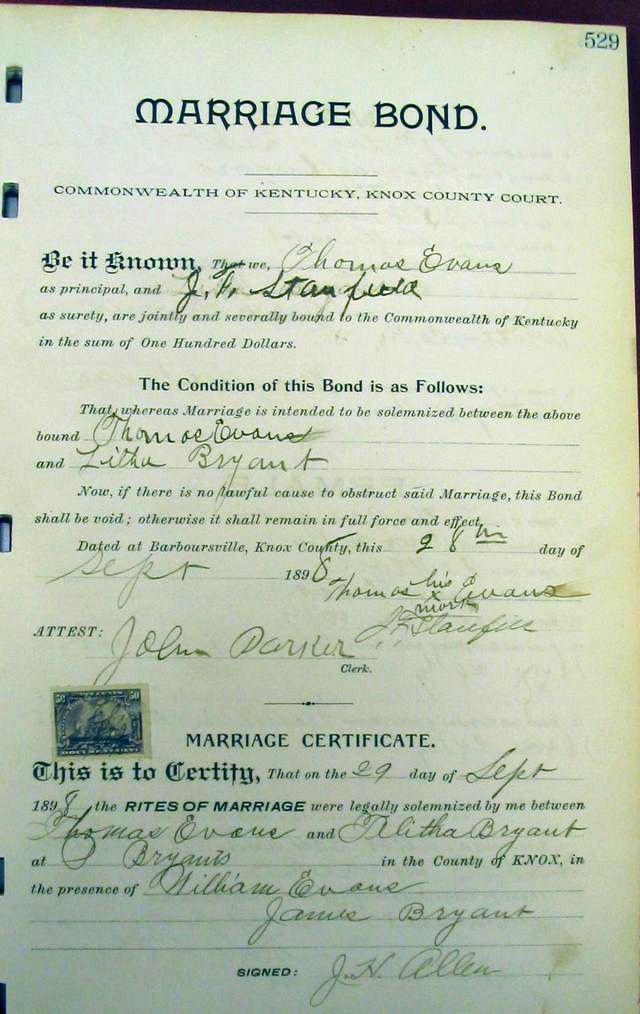 529
MARRIAGE BOND.
COMMONWEALTH OF KENTUCKY, KNOX COUNTY COURT.
Be it Known, That we, Thomas Evans
as principal, and J. F. Stanfield
as surety, are jointly and severally bound to the Commonwealth of Kentucky
in the sum of One Hundred Dollars.
The Condition of this Bond is as Follows:
That, whereas Marriage is intended to be solemnized between the above
bound Thomas Evans
and Litha Bryant
Now, if there is no lawful cause to obstruct said Marriage, this Bond
shall be void; otherwise it shall remain in full force and effect.
Dated at Barboursville, Knox County, this 28th day of
Sept 1898
Thomas his x mark Evans
ATTEST: J F Stanfill
John Parker
Clerk.
50 50
MARRIAGE CERTIFICATE.
This is to Certify, That on the 29 day of Sept
1898, the RITES OF MARRIAGE were legally solemnized by me between
Thomas Evans and Talitha Bryant
at Bryants in the County of KNOX, in
the presence of William Evans
James Bryant
SIGNED: J. H. Allen